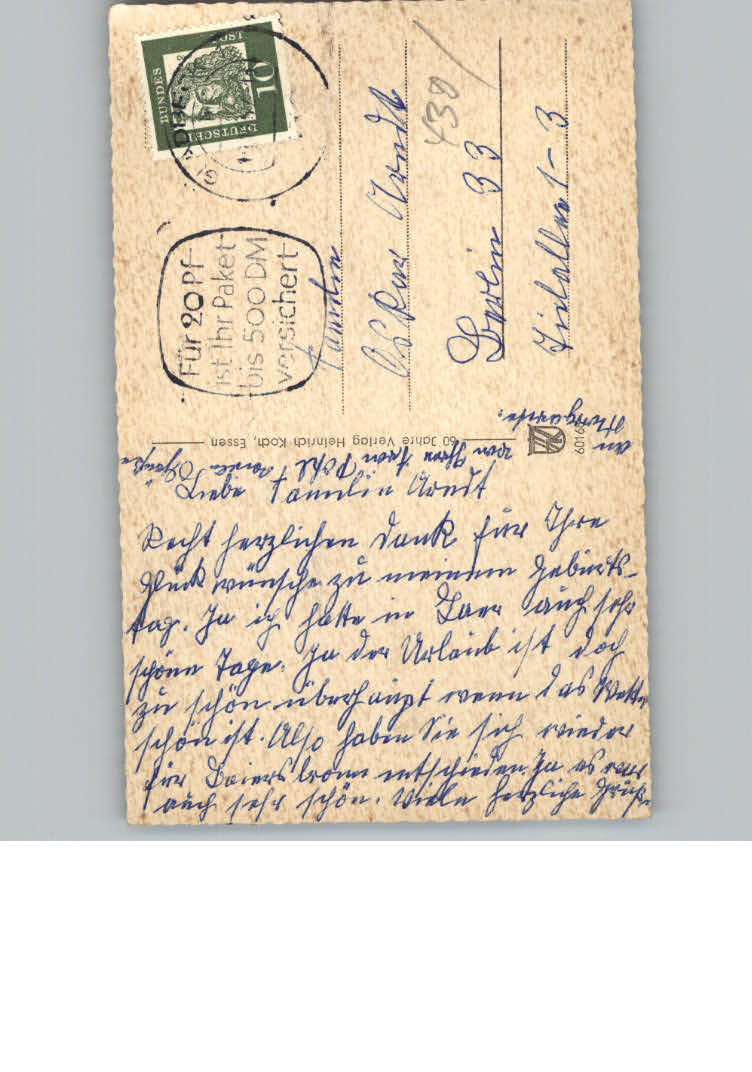 Liebe Familie Arndt
Recht herzlichen Dank für Ihre
Glückwünsche zu meinem Geburts-
tag. Ja ich hatte in Laer auch sehr
schöne Tage. Ja der Urlaub ist doch
zu schön überhaupt wenn das Wetter
schön ist. Also haben Sie sich wieder
für Baiersbronn entschieden. Ja es war
auch sehr schön. Viele herzliche Grüße
von Ihrer Frau Pohl
an
60 Jahre Verlag Heinrich Koch, Essen
Für 20 Pf
ist Ihr Paket
bis 500 DM
versichert
DEUTSCHE
BUNDES
10
Familie
Oskar Arndt
Berlin 33
1-3
439